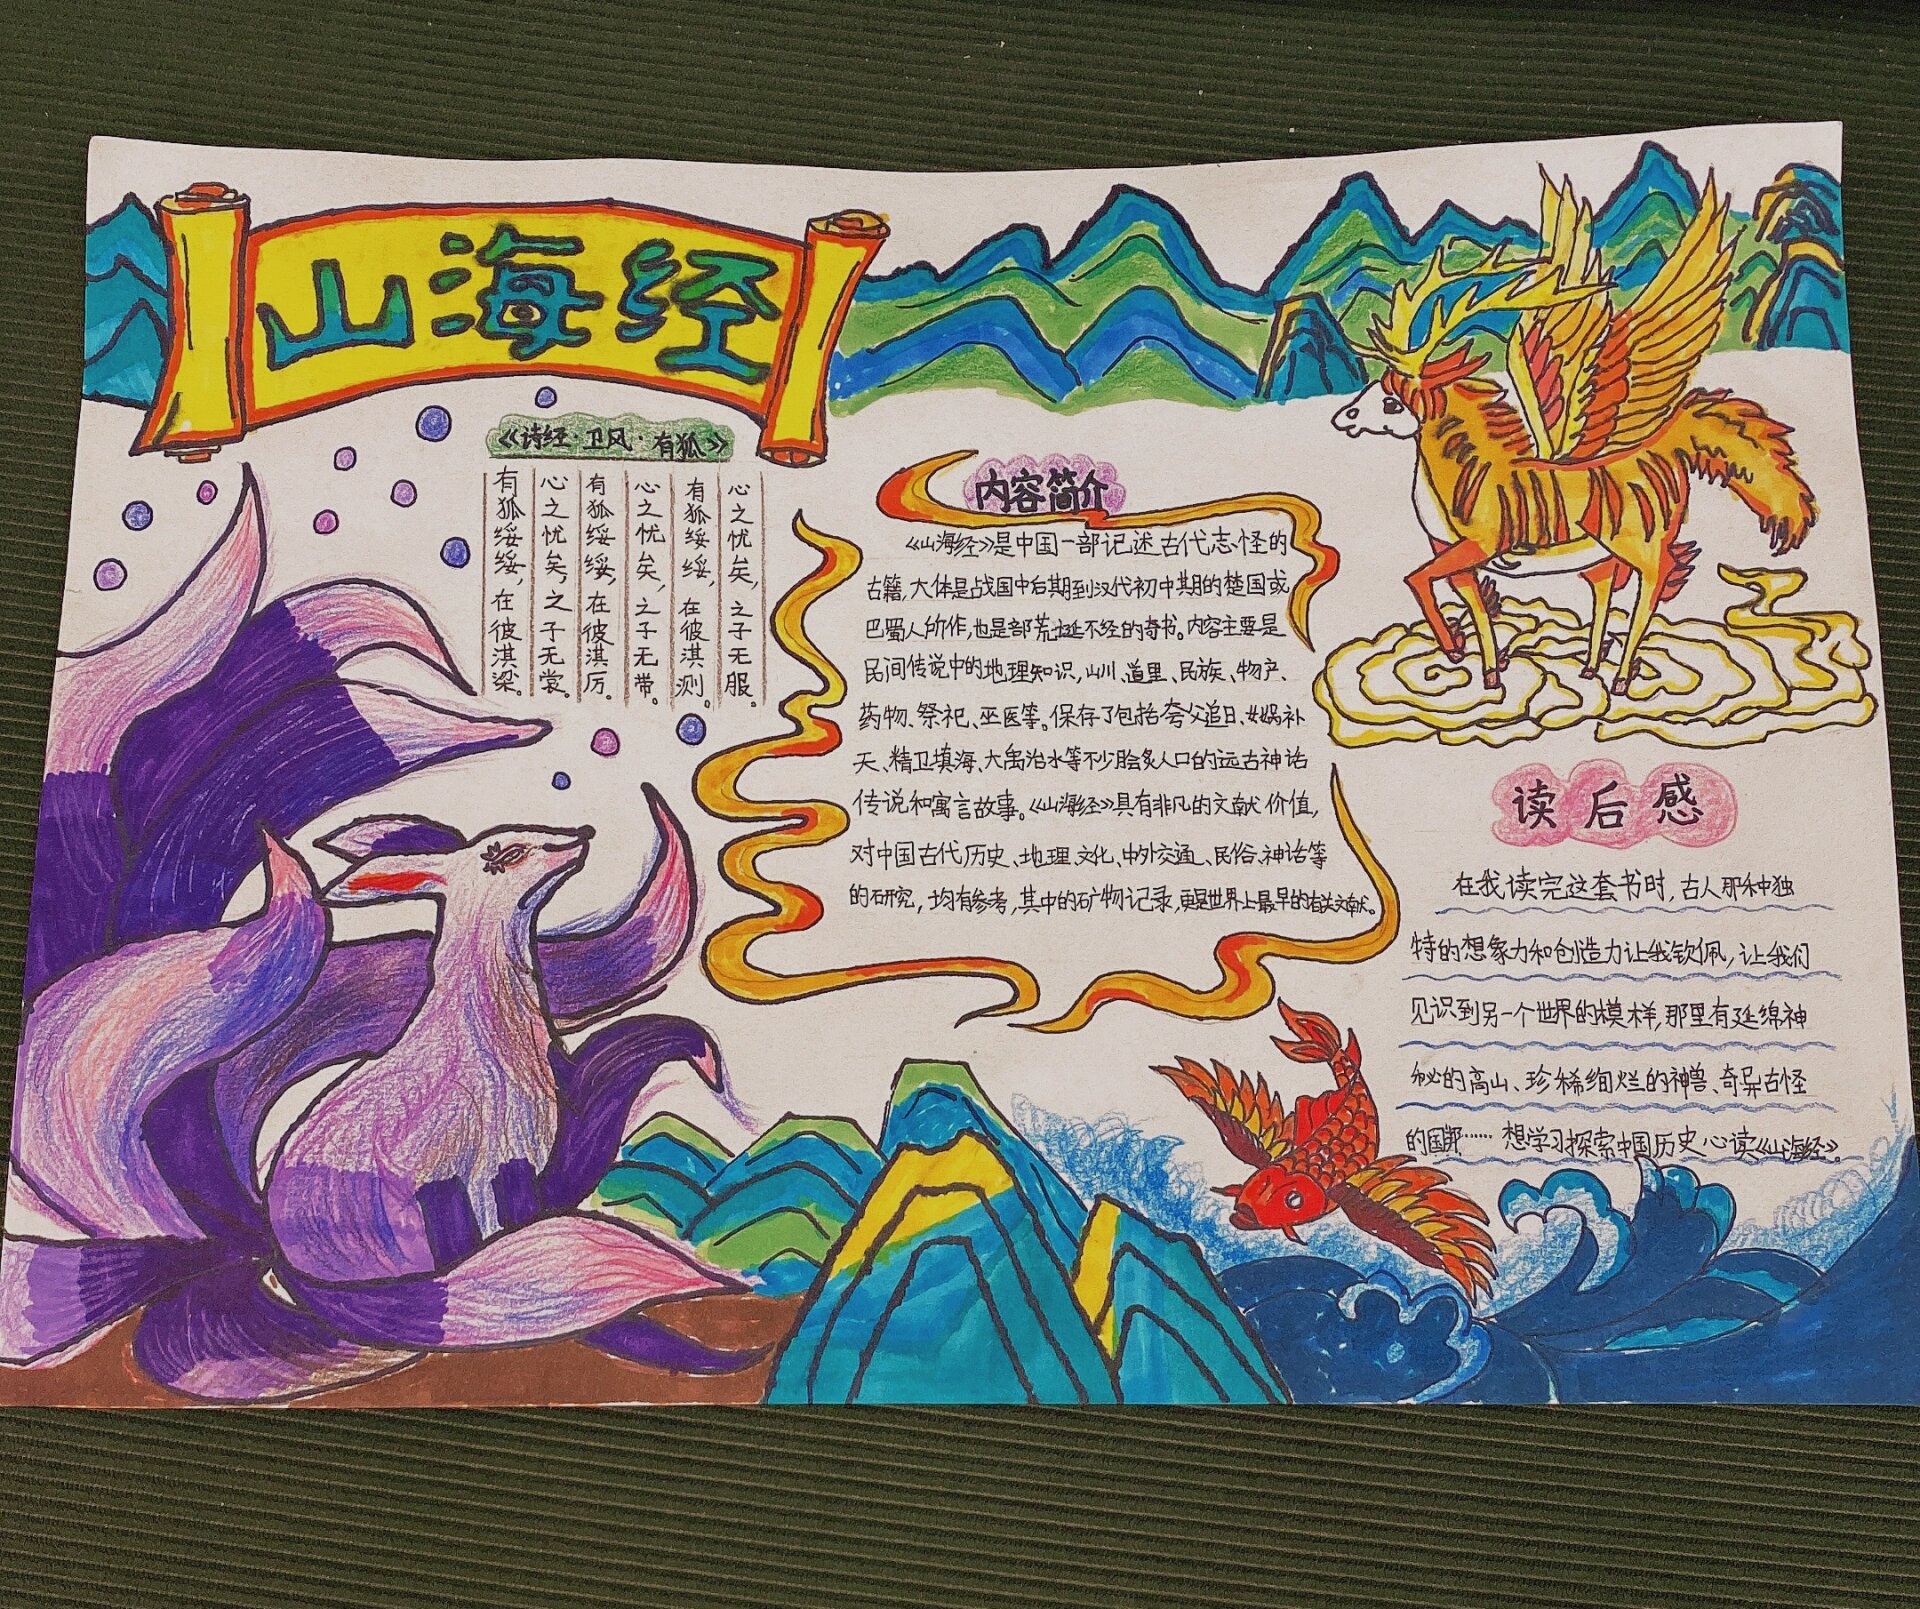 山海经
《诗经·卫风·有狐》
有狐绥绥，在彼淇梁。
心之忧矣，之子无裳。
有狐绥绥，在彼淇厉。
心之忧矣，之子无带。
有狐绥绥，在彼淇测。
心之忧矣，之子无服。
内容简介
《山海经》是中国一部记述古代志怪的
古籍，大体是战国中后期到汉代初中期的楚国或
巴蜀人所作，也是部荒诞不经的奇书。内容主要是
民间传说中的地理知识，山川、道里、民族、物产、
药物、祭祀、巫医等。保存了包括夸父追日、女娲补
天、精卫填海、大禹治水等不少脍炙人口的远古神话
传说和寓言故事。《山海经》具有非凡的文献价值，
对中国古代历史、地理、文化、中外交通、民俗、神话等
的研究，均有参考，其中的矿物记录，更是世界上最早的有关文献。
读后感
在我读完这套书时，古人那种独
特的想象力和创造力让我钦佩，让我们
见识到另一个世界的模样，那里有延绵神
秘的高山、珍稀绚烂的神兽、奇异古怪
的国邦……想学习探索中国历史必读《山海经》。